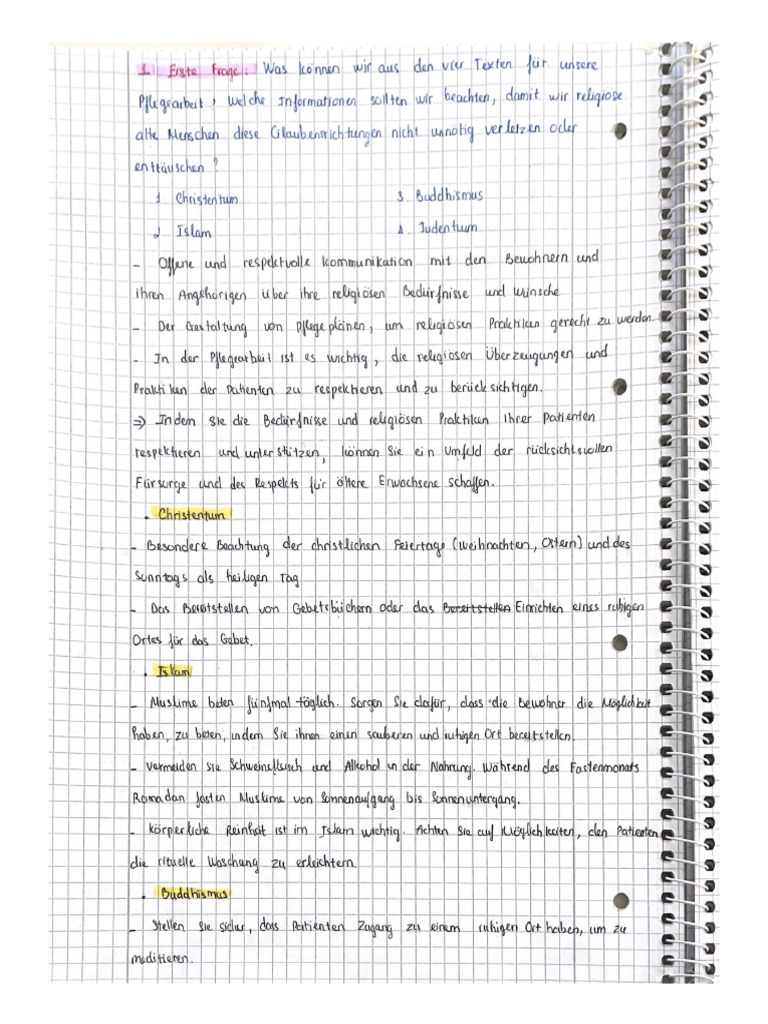 1. Erste Frage: Was können wir aus den vier Texten für unsere
Pflegearbeit, welche Informationen sollten wir beachten, damit wir religiöse
alte Menschen diese Glaubensrichtungen nicht unnötig verletzen oder
enttäuschen?
1 Christentum 3. Buddhismus
2 Islam 4. Judentum
- Offene und respektvolle Kommunikation mit den Bewohnern und
ihren Angehörigen über ihre religiösen Bedürfnisse und Wünsche
- Der Gestaltung von Pflegeplänen, um religiösen Praktiken gerecht zu werden.
- In der Pflegearbeit ist es wichtig, die religiösen Überzeugungen und
Praktiken der Patienten zu respektieren und zu berücksichtigen.
⇒ Indem Sie die Bedürfnisse und religiösen Praktiken Ihrer Patienten
respektieren und unterstützen, können Sie ein Umfeld der rücksichtsvollen
Fürsorge und des Respekts für ältere Erwachsene schaffen.
. Christentum
- Besondere Beachtung der christlichen Feiertage (Weihnachten, Ostern) und des
Sonntags als heiligen Tag
- Das Bereitstellen von Gebetsbüchern oder das Bereitstellen Einrichten eines ruhigen
Ortes für das Gebet.
. Islam
- Muslime beten fünfmal täglich. Sorgen Sie dafür, dass die Bewohner die Möglichkeit
haben, zu beten, indem Sie ihnen einen sauberen und ruhigen Ort bereitstellen.
- Vermeiden sie Schweinefleisch und Alkohol in der Nahrung. Während des Fastenmonats
Ramadan fasten Muslime von Sonnenaufgang bis Sonnenuntergang.
- Körperliche Reinheit ist im Islam wichtig. Achten Sie auf Möglichkeiten, den Patienten
die rituelle Waschung zu erleichtern.
. Buddhismus
- Stellen Sie sicher, dass Patienten Zugang zu einem ruhigen Ort haben, um zu
meditieren.